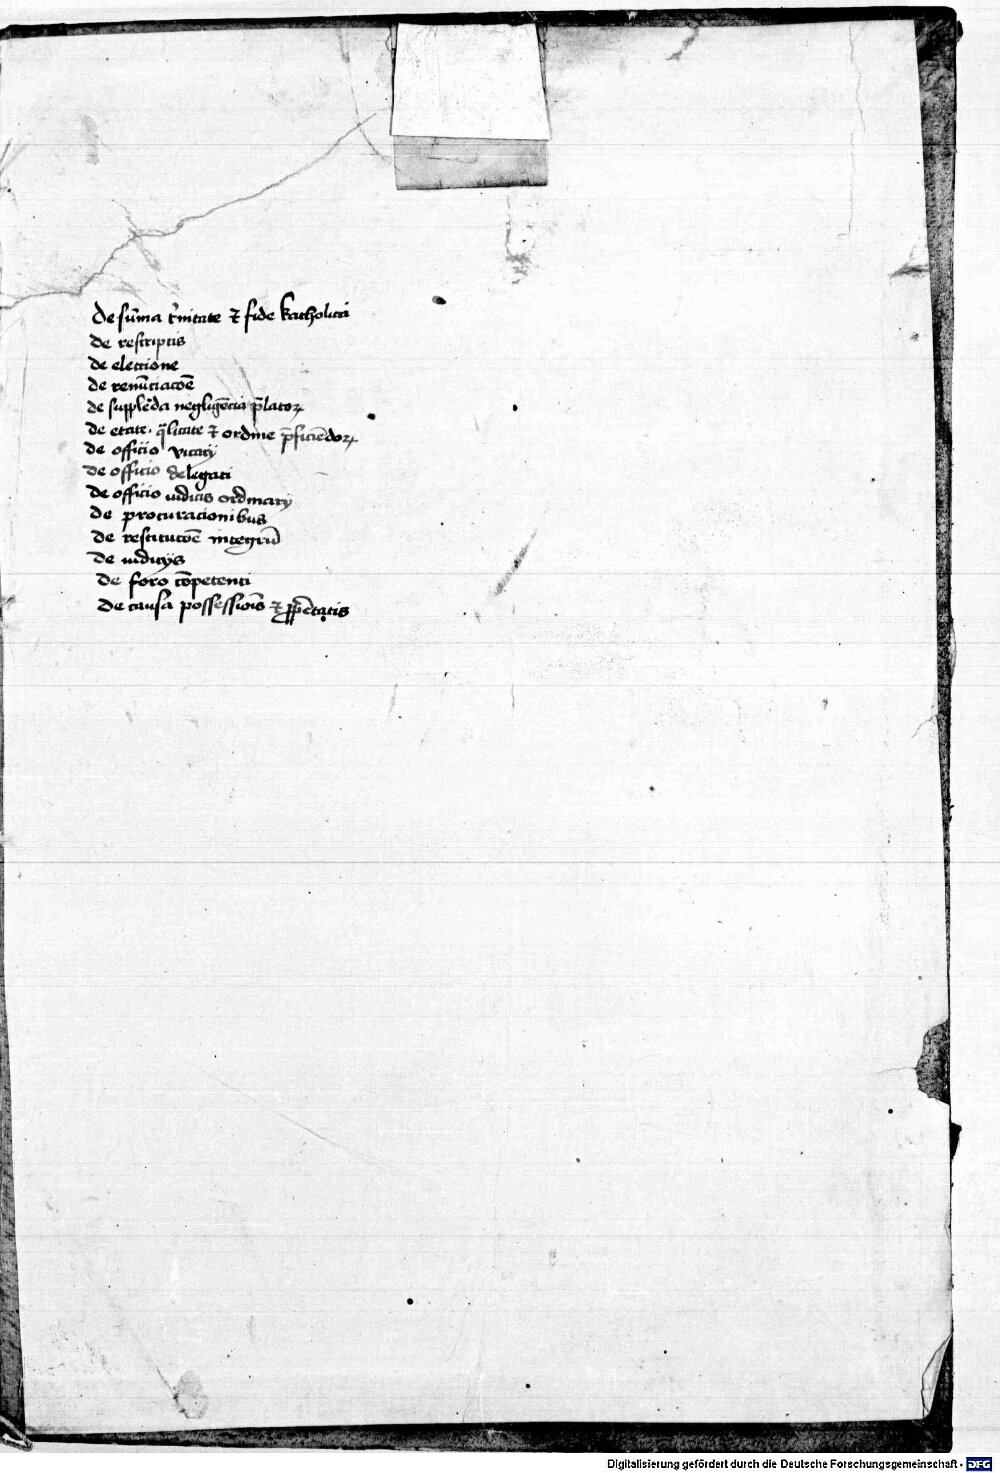 De su̅ma t'nitate ⁊ fide katholica
de rescriptis
de elecctione
de renu̅ciac̅oe
de supple̅da neglige̅cia p̅latoꝝ
de etate . q̅litate ⁊ ordine p̅ficie̅doꝝ
de officio vicarij
de officio delegati
de officio iudicis ordinarij
de procuracionibus
de restituc̅oe integru̅
De iudicijs
de foro co̅petenti
de causa possessio̅is ⁊ pp̅etatis
Digitalisierung gefördert durch die Deutsche Forschungsgemeinschaft - DFG